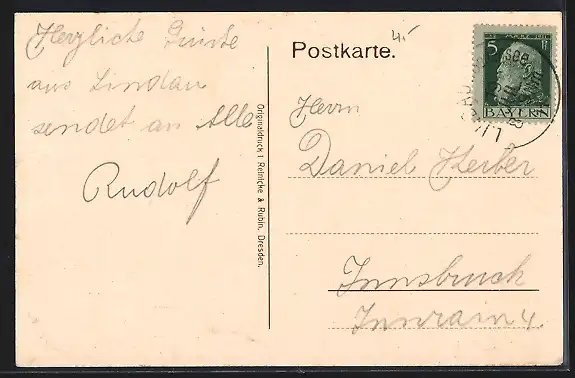 Herzliche Grüße
aus Lindau
sendet an Alle
Rudolf
Originaldruck v. Reinicke & Rubin, Dresden.
Postkarte.
4.-
5 Pf
BAYERN
Herrn
Daniel Herber
Innsbruck
Innrain 4.